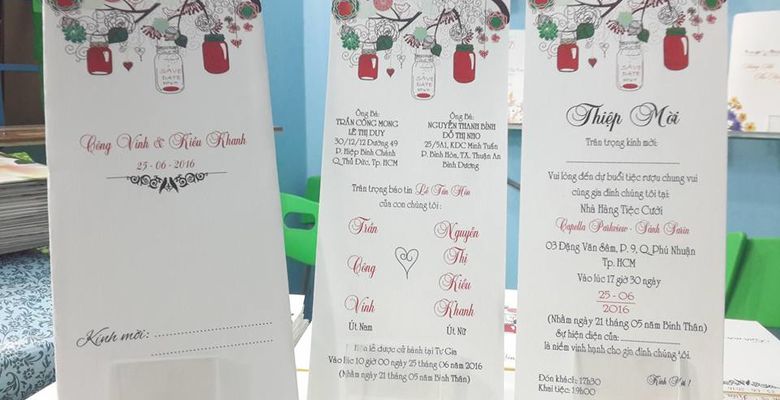 Công Vinh & Kiều Khanh
25 - 06 - 2016
Kính mời:
SAVE
DATE
Ông Bà:
TRẦN CÔNG MONG
LÊ THỊ DUY
30/12/12 Đường 49
P. Hiệp Bình Chánh
Q.Thủ Đức, Tp. HCM
Ông Bà:
NGUYỄN THANH BÌNH
ĐỖ THỊ NHO
25/5A1, KDC Minh Tuấn
P. Bình Hòn, TX. Thuận An
Bình Dương
Trân trọng báo tin Lễ Tân Hôn
của con chúng tôi:
Trần
Công
Vinh
Út Nam
Nguyễn
Thị
Kiều
Khanh
Út Nữ
Hôn lễ được cử hành tại Tư Gia
Vào lúc 10 giờ 00 ngày 25 tháng 06 năm 2016
(Nhằm ngày 21 tháng 05 năm Bính Thân)
SAVE
DATE
Thiệp Mời
Trân trọng kính mời:
Vui lòng đến dự buổi tiệc rượu chung vui
cùng gia đình chúng tôi tại:
Nhà Hàng Tiệc Cưới
Capella Parkview - Sảnh Sarin
03 Đặng Văn Sâm, P. 9, Q. Phú Nhuận
Tp. HCM
Vào lúc 17 giờ 30 ngày
25 - 06
2016
(Nhằm ngày 21 tháng 05 năm Bính Thân)
Sự hiện diện của
là niềm vinh hạnh cho gia đình chúng tôi.
Đón khách: 17h30
Khai tiệc: 19h00
Kính Mời !
SAVE
DATE